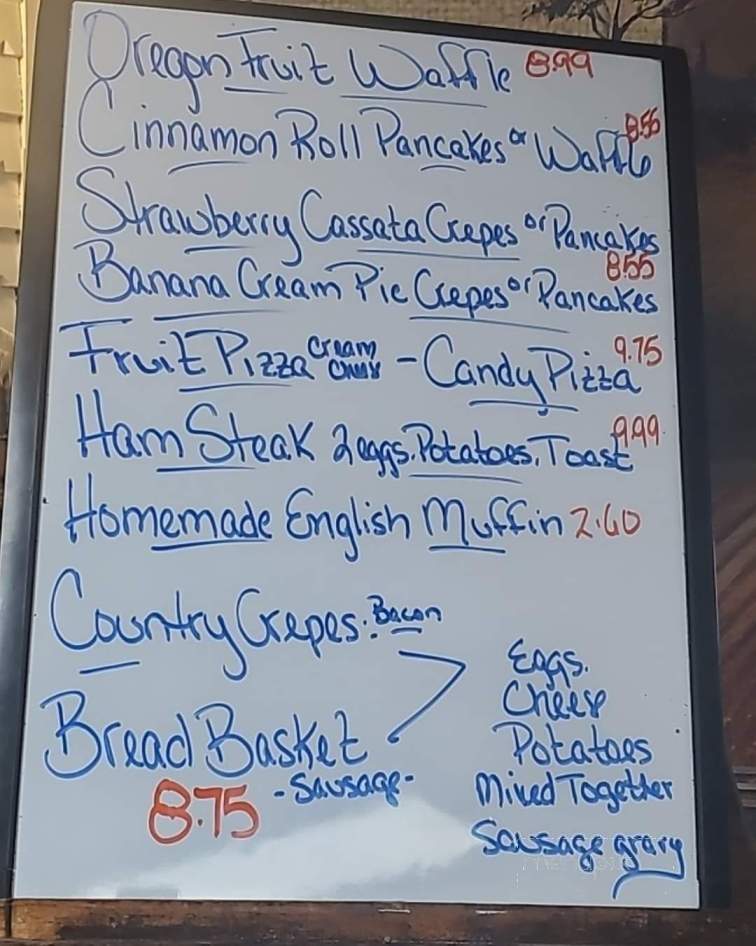 Oregon Fruit Waffle 8.99
Cinnamon Roll Pancakes or Waffle 8.55
Strawberry Cassata Crepes or Pancakes
Banana Cream Pie Crepes or Pancakes 8.55
Fruit Pizza Cream Cheese - Candy Pizza 9.75
Ham Steak 2 eggs. Potatoes, Toast 9.99
Homemade English Muffin 2.60
Country Crepes: Bacon
Bread Basket
8.75 - Sausage -
Eggs.
Cheese
Potatoes
Mixed Together
Sausage gravy